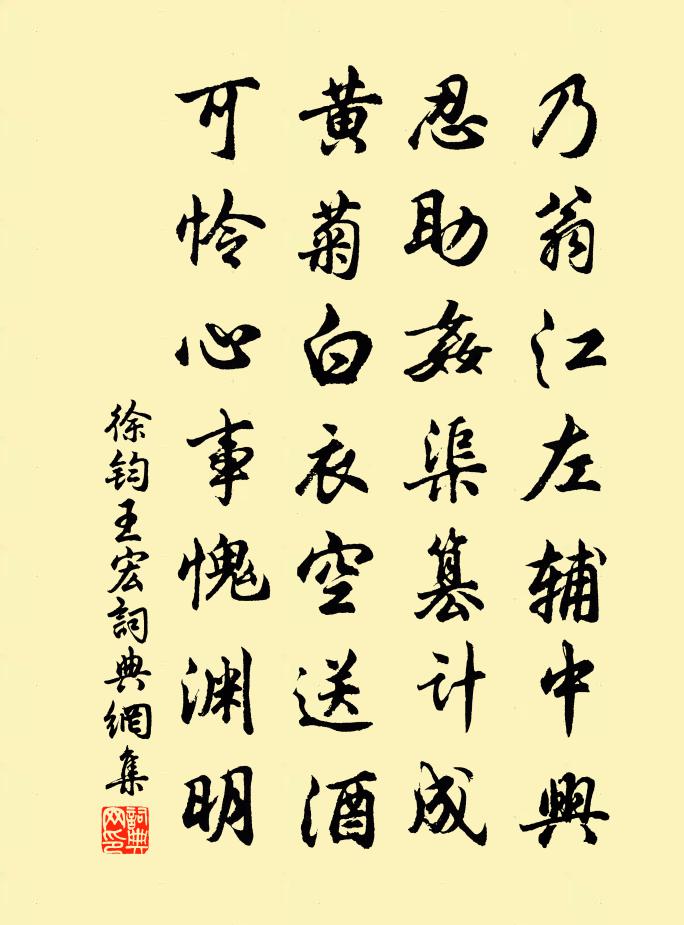 乃翁江左辅中興
忍助姦渠篡计成
黄菊白衣空送酒
可怜心事愧渊明
徐钧王宏詞典網集
詞典网印